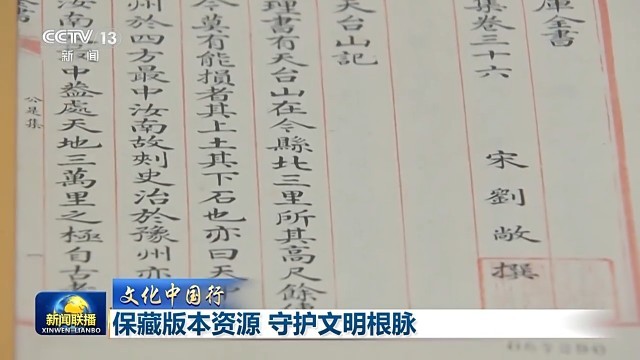 CCTV 13
新闻
庫全書
集卷三十六 宋劉敞撰
天台山記
理書有天台山在今縣北三里所其高尺餘
今莫有能損者其上土其下石也亦曰天
州於四方最中汝南故刺史治於豫州亦
汝南 中 處天地三萬里之極自古
公是集
文化中国行
新闻联播
XINWEN-LIANBO
保藏版本资源 守护文明根脉